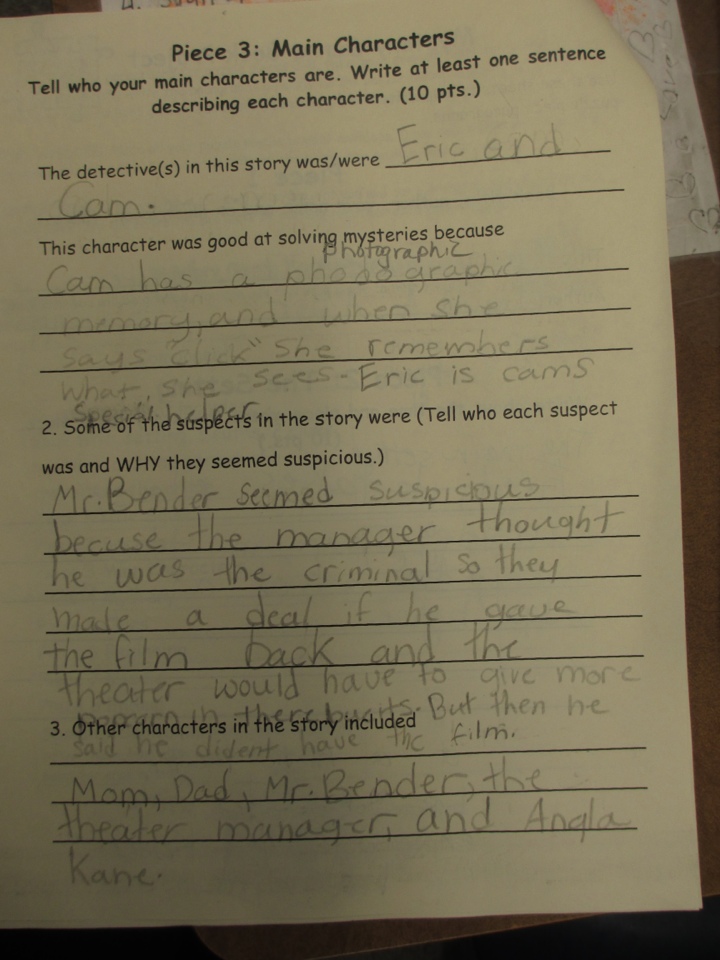 Piece 3: Main Characters
Tell who your main characters are. Write at least one sentence
describing each character. (10 pts.)
The detective(s) in this story was/were Eric and
Cam.
This character was good at solving mysteries because
photographic
Cam has a photographic
memory, and when she
says "click" she remembers
what she sees. Eric is cams
special helper
2. Some of the suspects in the story were (Tell who each suspect
was and WHY they seemed suspicious.)
Mr. Bender seemed suspicious
becuse the manager thought
he was the criminal so they
made a deal if he gave
the film back and the
theater would have to give more
popcorn in there buckets. But then he
3. Other characters in the story included
said he dident have the film.
Mom, Dad, Mr. Bender, the
theater manager, and Angla
Kane.